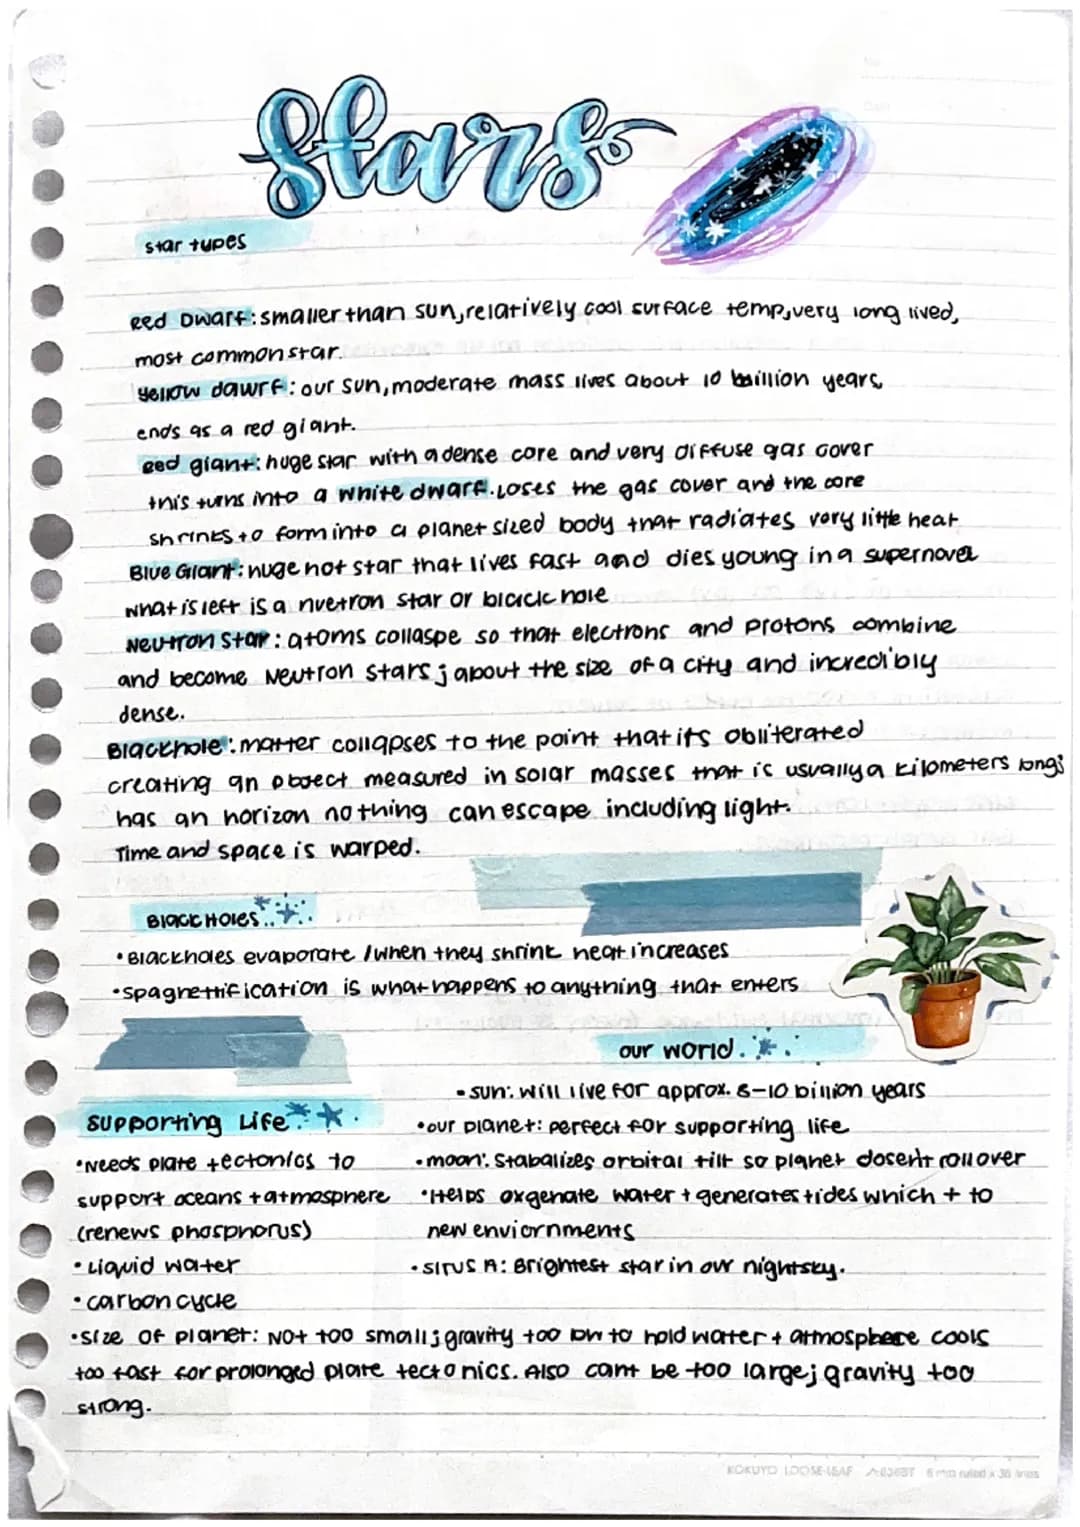 Stars
star types
Red Dwarf: smaller than sun, relatively cool surface temp, very long lived,
most common star.
Yellow dawrf: our sun, moderate mass lives about 10 billion years,
ends as a red giant.
Red giant: huge star with a dense core and very diffuse gas cover
this turns into a white dwarf. Loses the gas cover and the core
shrinks to form into a planet sized body that radiates very little heat
Blue Giant: huge hot star that lives fast and dies young in a supernova
what is left is a nuetron star or black hole
Neutron Star: atoms collaspe so that electrons and protons combine
and become Neutron stars; about the size of a city and incredibly
dense.
Blackhole: matter collapses to the point that its obliterated
creating an object measured in solar masses that is usually a kilometers long;
has an horizon nothing can escape including light.
Time and space is warped.
Black Holes..
•Blackholes evaporate / when they shrink heat increases
•spaghettification is what happens to anything that enters
our world.
• sun: will live for approx. 8-10 billion years
Supporting Life
•our planet: perfect for supporting life
•Needs plate tectonics to
•moon: Stabalizes orbital tilt so planet dosent roll over
support oceans + atmosphere
•Helps oxgenate water + generates tides which + to
(renews phosphorus)
new enviornments
•Liquid water
•Sirus A: Brightest star in our nightsky.
•carbon cycle
•size of planet: Not too small; gravity too low to hold water + atmosphere cools
too fast for prolonged plate tectonics. Also cant be too large; gravity too
strong.
KOKUYO LOOSE-LEAF 6 mm ruled x 36 lines